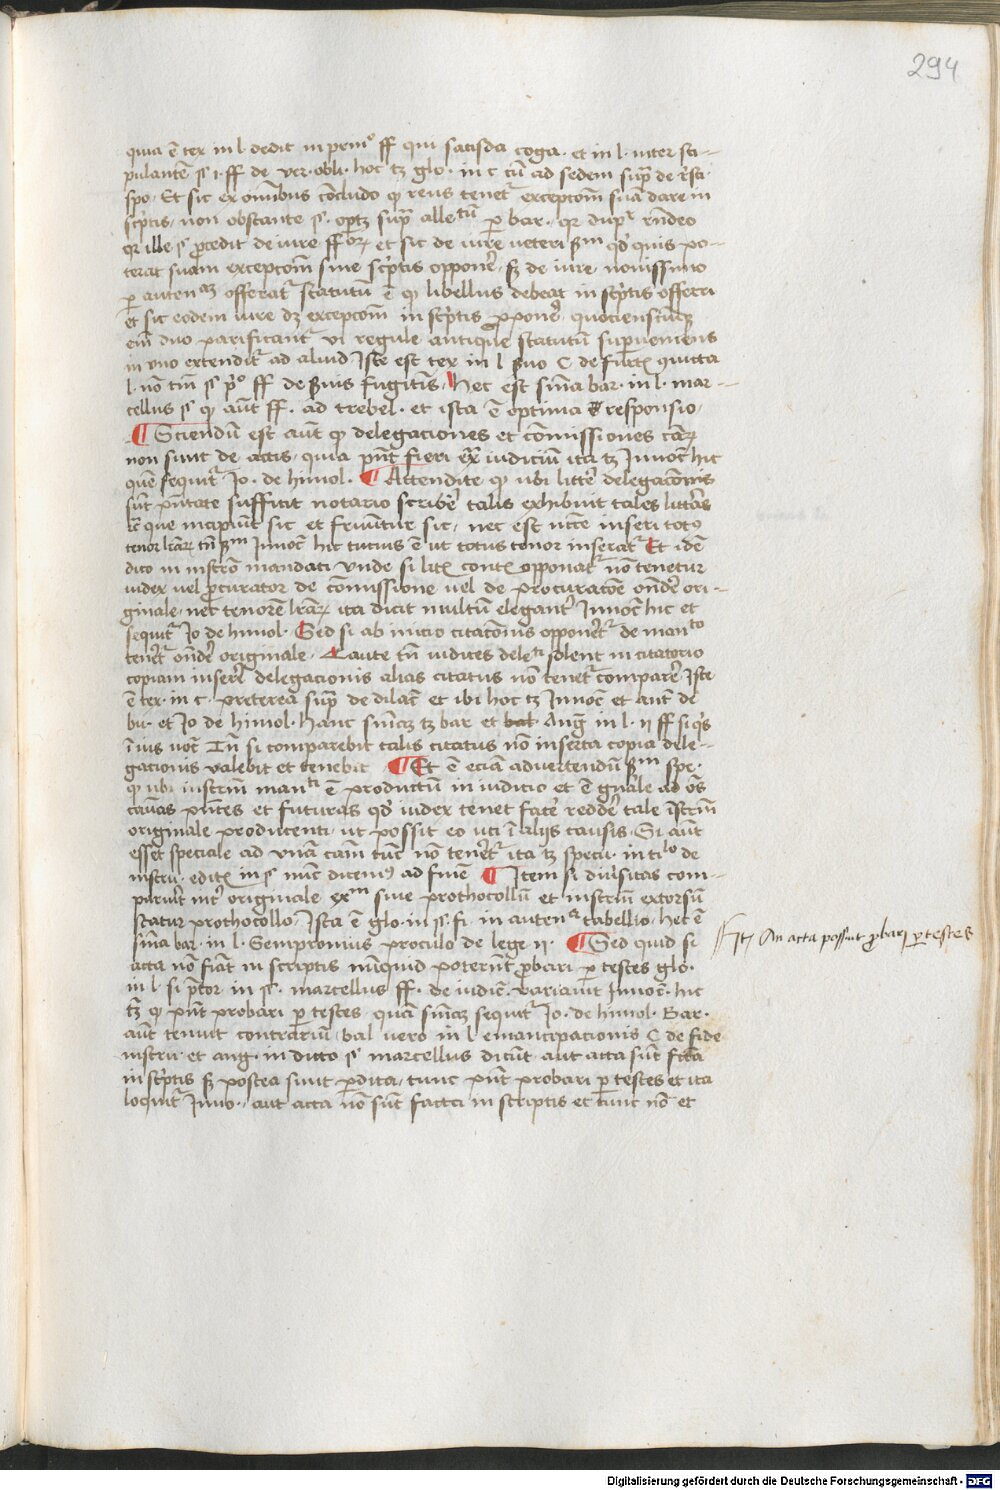 294
quia ē tex in l dedit in prim° ff qui satisda coga. et in l. inter sti-
pulantē § i. ff de ver. obli. hoc tꝫ glo. in c cū ad sedem supͣ de rͤsti.
spo. Et sic ex omībus concludo qꝫ reus tenetᷣ exceptōm suā dare in
scͥptis, non obstante §. oportꝫ supͣ alle^tū ꝑ bar. qr dupͬ rn̄deo
qr ille § ꝓcedit de iure ff oꝝ et sic de iure veteri ẜm qd quis po-
terat suam exceptōm sine scͥptis opponē, sꝫ de iure novissimo
ꝑ auten^am offeratᷣ statutū ē qꝫ libellus debeat in scͥptis offerri
et sic eodem iure dꝫ exceptōm in scͥptis ꝓponē, quocienscūqꝫ
eīn duo parificantᷣ vi regule antique statutū suꝑveniens
in vno extenditᷣ ad aliud, Iste est tex in l C de furt
l. nō tm̄ § pͦ ff de fugitiīs, Hec est sūma bar. in l. mar-
cellus § qꝫ aūt ff. ad trebel. et ista ē optima responsio,
¶ Sciendū est aūt qꝫ delegaciones et cōmissiones cāꝝ
non sunt de actis, quia pn̄t fieri exͣ iudiciū ita tꝫ Innoc̄ hic
quē sequitᷣ Jo. de himol. ¶ Attendite qꝫ ubi littēe delegacōnis
sūt pn̄tate sufficit notario scribē talis exhibuit tales litt̄as
que incipiūt sic et feriūntur sic, nec est nc̄ce inseri totꝰ
tenor lr̄aꝝ tn̄ ẜm Innoc̄ hic tucius ē ut totus tenor inseratᷣ Et idē
dico in instrō mandati vnde si litꝫ contꝫ opponatᷣ nō tenetur
iudex vel ꝓcurator de cōmissione vel de procuratōe on̄dē ori-
ginale, nec tenorē lr̄aꝝ ita dicit multū elegantᷣ Innoc̄ hic et
sequitᷣ Jo de himol. Sed si ab inicio citacōnis opponerᷣ de man^to
tenerᷣ on̄dē originale. Caute tn̄ iudices dele^ti solent in citatorio
copiam inserē delegacionis alias citatus nō tenetᷣ comparē Iste
ē tex. in c. preterea supͣ de dilac̄ et ibi hoc tꝫ Innoc̄ et ant̄ de
bu. et Jo de himol. Hanc sn̄iaꝫ tꝫ bar et bal Ang̃ in l. ii ff si qͥs
ī ius voc̄ In̄ si comparebit talis citatus nō inserta copia dele-
gacionis valebit et tenebit ¶ Et ē eciā advertendū ẜm spe.
qꝫ ubi instrm̄ man^ti ē productū in iudicio et ē gn̄ale ad oēs
causas pn̄tes et futuras qd iudex tenetᷣ facē reddē tale īstrm̄
originale producenti, ut possit eo uti ī alijs causis. Si aūt
esset speciale ad vnā cām tūc nō tenerᷣ ita tꝫ specu. in ti^lo de
instru. edit in § nūc dicemꝰ ad finē ¶ Item si diūsitas com-
paruit int̄ originale exm̄ sive prothocollū et instrm̄ extorsū
statur prothocollo, Ista ē glo. in §. fi. in auten^a tabellio, hec ē
sn̄ia bar. in l. Sempronius proculo de lege ii. ¶ Sed quid si
acta nō fiāt in scriptis nūquid poterūt ꝓbari ꝑ testes glo.
in l. si pͣtor in §. marcellus ff. de iudic̄. variavit Innoc̄. hic
tꝫ qꝫ pn̄t probari ꝑ testes, quā sn̄iaꝫ sequitᷣ Jo. de himol. Bar.
aūt tenuit contrariū, bal vero in l emancipacionis C de fide
instru. et ang. in dicto § marcellus dicūt aut acta sūt fc̄a
in scͥptis sꝫ postea sunt ꝑdita, tunc pn̄t probari ꝑ testes et ita
loquitᷣ Inno., aut acta nō sūt facta in scriptis et tunc nō et
An acta possunt ꝓbari ꝑ testes
Digitalisierung gefördert durch die Deutsche Forschungsgemeinschaft - DFG